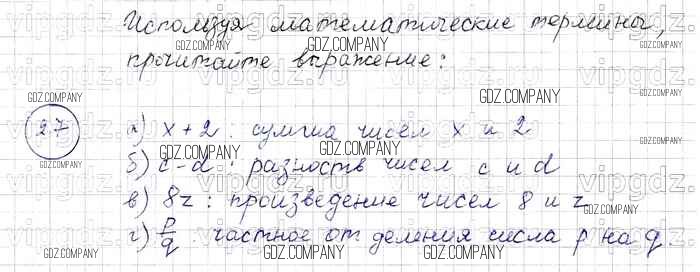 Используя математические термины,
прочитайте выражение:
2.7
а) x + 2 : сумма чисел x и 2
б) c - d : разность чисел c и d
в) 8z : произведение чисел 8 и z
г) p/q : частное от деления числа p на q.
GDZ.COMPANY
GDZ.COMPANY
GDZ.COMPANY
GDZ.COMPANY
GDZ.COMPANY
GDZ.COMPANY
GDZ.COMPANY
GDZ.COMPANY
GDZ.COMPANY
GDZ.COMPANY
GDZ.COMPANY